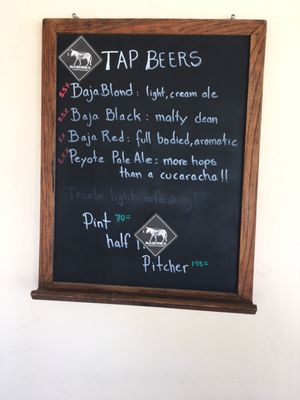 TAP BEERS
5.5% Baja Blond: light, cream ale
Baja Black: malty dean
Baja Red: full bodied, aromatic
Peyote Pale Ale: more hops
than a cucaracha!!
Tecate light refreshing!
Pint 70
half
Pitcher 195